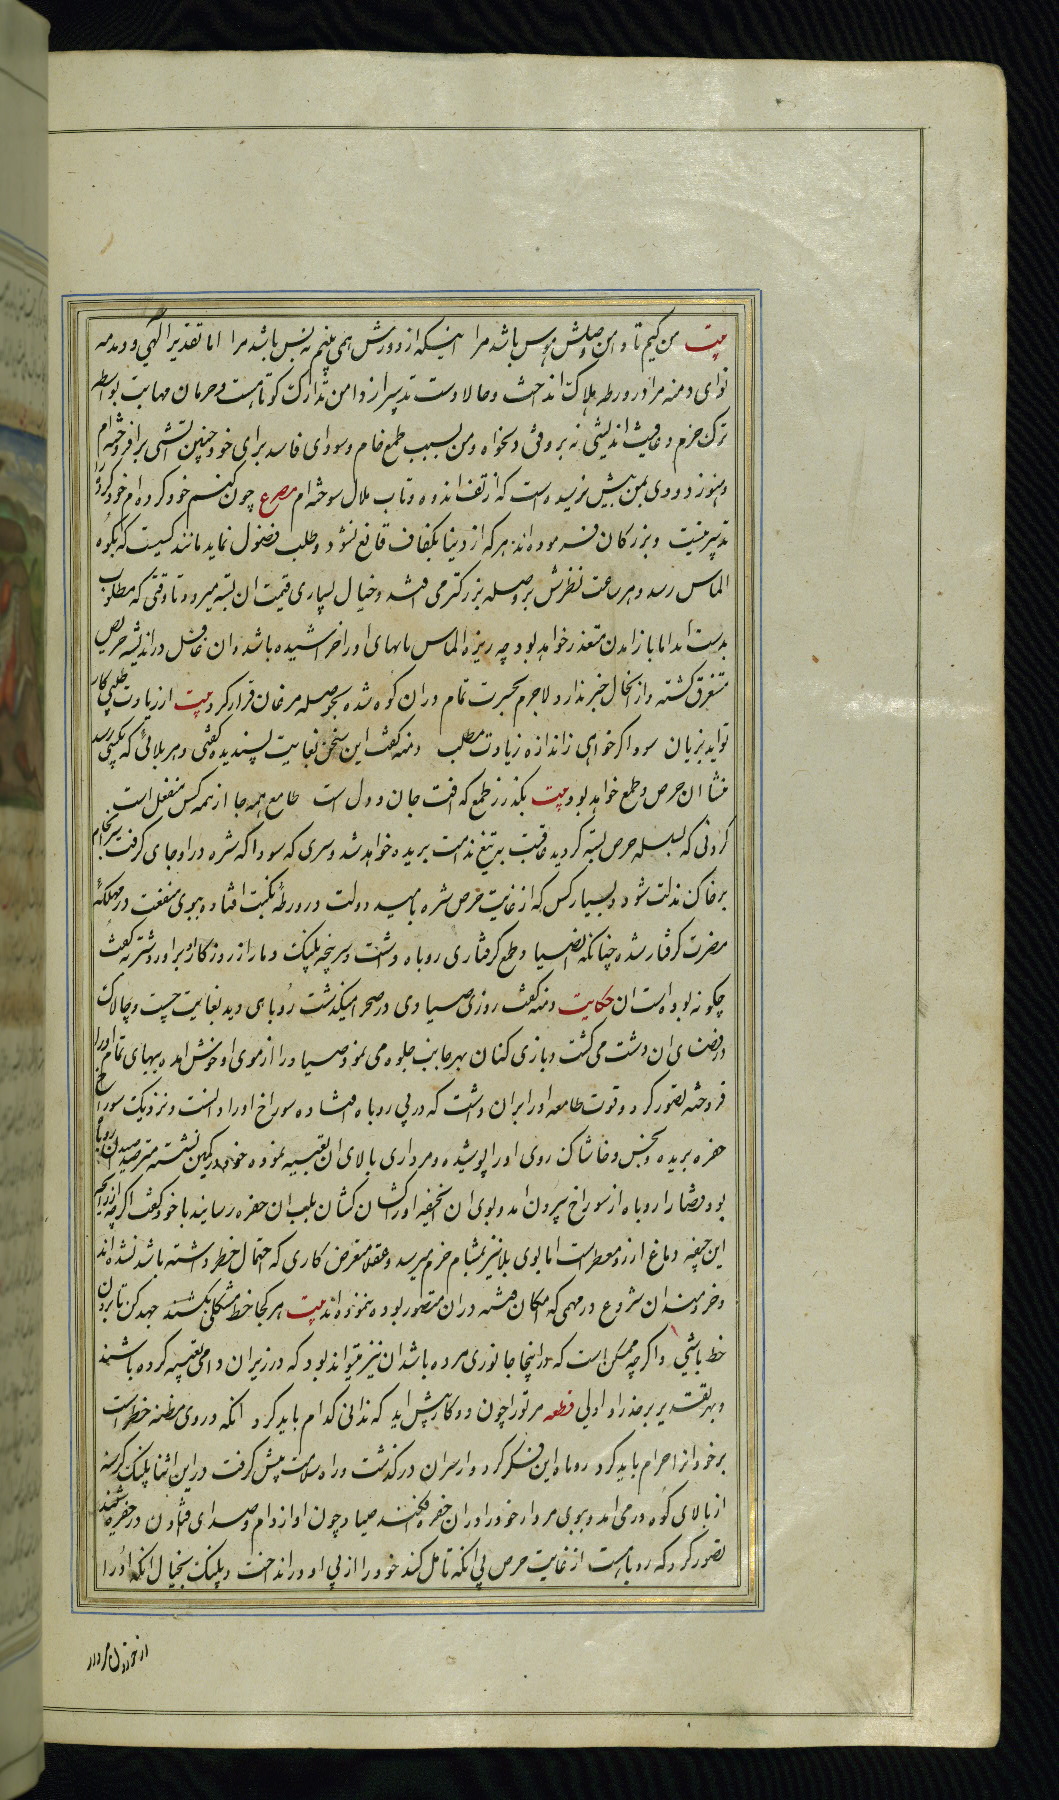 بیت من کیم تا وین وصلش هوس باشد مرا اینکه از دورش همی بینم نه بس باشد مرا اما تقدیر الهی و دمدمه
نوای دمنه مرا در ورطه هلاک انداخت و حالا دست تدبیر از دامن تدارک کوتاهست و حرمان مهابت بواسطه
ترک حزم و عاقبت اندیشی نه بر وفق دلخواه و من بسبب طمع خام و سودای فاسد برای خود چنین آتشی برافروخته‌ام
و هنوز دودی بمن بیش نرسیده است که از تف اندوه و تاب ملال سوخته‌ام مصرع چون کنم خود کرده‌ام خود کرده را
تدبیر نیست و بزرکان فرموده‌اند هر که از دنیا بکفاف قانع نشود و طلب فضول نماید مانند کسیست که بکوه
الماس رسد و هر ساعت نظرش بر وصله بزرکتر می افتد و خیال بسیاری قیمت ان بسته میرود تا وقتی که مطلوب
بدست آمد اما باز امدن متعذر خواهد بود چه ریزه الماس پایهای او را خراشیده باشد و ان غافل در اندیشه حریص
مستغرق کشته و از انحال خبر ندارد لاجرم بحسرت تمام در ان کوه شده بحوصله مرغان قرار کرد بیت از زیادت طلبی کار
تو اید بزیان سود اکر خواهی از اندازه زیادت مطلب دمنه کفت این سخن بغایت پسندیده کفتی و هر بلائی که بکسی رسد
منشا ان حرص و طمع خواهد بود بیت بکذر ز طمع که افت جان و دل است طامع همه جا از همه کس منفعل است
کردنی که بسلسله حرص بسته کردید عاقبت به تیغ ندامت بریده خواهد شد و سری که سودا که شره در او جای کرفت سرانجام
بر خاک مذلت شود و بسیار کس که از غایت حرص شره بامید دولت در ورطهٔ نکبت افتاده و ببوی منفعت در مهلکهٔ
مضرت کرفتار شده چنانکه انصیاد طمع کرفتاری روباه داشت و سرپنجه پلنک دمار از روزکار او براورد شتربه کفت
چکونه بوده است ان حکایت دمنه کفت روزی صیادی در صحرا میکذشت روباهی دید بغایت چست و چالاک
در فضای ان دشت می کشت و بازی کنان بهر جانب جلوه می نمود صیاد را از موی او خوش امد و ببهای تمام او را
فروخته تصور کرد و قوت طامعه او را بران داشت که در پی روباه افتاده سوراخ او را دانست و نزدیک سوراخ
حفره بریده و بخس و خاشاک روی او را پوشیده و مرداری بالای ان تعبیه نموده خود در کمین نشسته مترصد صیدان روباه
بود قضا را روباه از سوراخ بیرون امد و بوی ان جیفه او را کشان کشان بلب ان حفره رسانید با خود کفت اکرچه از رایحه
این جیفه دماغ ارزو معطر است اما بوی بلا نیز بمشام خرم میرسد و عقلا متعرض کاری که احتمال خطر داشته باشد نشده‌اند
و خردمندان شروع در مهمی که امکان فتنه در ان متصور بوده ننموده‌اند بیت هر کجا خط مشکلی بکشند جهد کن تا برون
خط باشی و اکرچه ممکن است که در اینجا جانوری مرده باشد ان نیز میتواند بود که در زیر ان دامی تعبیه کرده باشند
و بهر تقدیر بر حذر او اولی قطعه مر ترا چون دو کار پیش اید که ندانی کدام باید کرد انکه در وی مظنه خطر است
بر خود از احرام باید کرد روباه این فکر کرد و از سر ان درکذشت و راه سلامت پیش کرفت در این اثنا پلنک کرسنه
از بالای کوه درمی امد و ببوی مردار خود را در ان حفره افکند صیاد چون اواز دام و صدای افتادن در حفره شنید
تصور کرد که روباهست از غایت حرص بی انکه تامل کند خود را از پی او در انداخت و پلنک بخیال انکه او را
از خوردن مردار